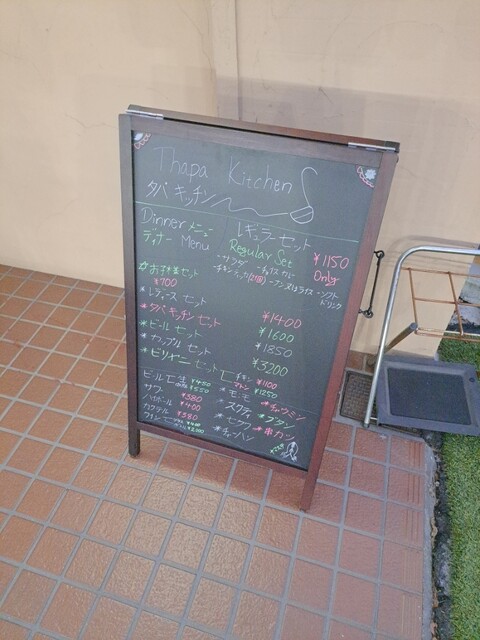 Thapa Kitchen
タパ キッチン
Dinner メニュー
ディナー Menu
レギュラーセット
Regular Set
¥1150
Only
・サラダ ・チョイスカレー
・チキンティッカ(1個) ・ナン又はライス ・ソフトドリンク
☆お子様セット
¥700
* レディースセット ¥1400
* タパキッチンセット ¥1600
* ビールセット ¥1850
* カップルセット ¥3200
* ビリヤニセット チキン ¥1100
マトン ¥1250
ビール 生 ¥450
¥550
サワー ¥380
ハイボール ¥400
カクテル ¥380
ワイン
¥2,000
* モーモ * チャウミン
* スクティ * ブタン
* セクワ * 串カン
* チャーハン